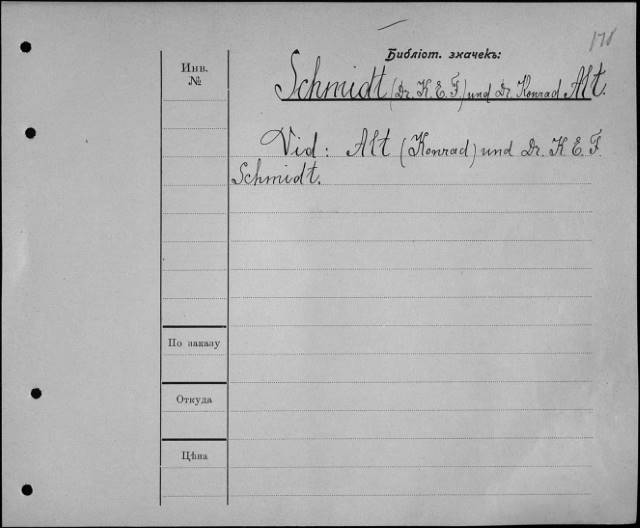 178
Библіот. значекъ:
Инв.
№
Schmidt (Dr. K. E. F.) und Dr. Konrad Alt.
Vid: Alt (Konrad) und Dr. K E. F.
Schmidt.
По заказу
Откуда
Цѣна